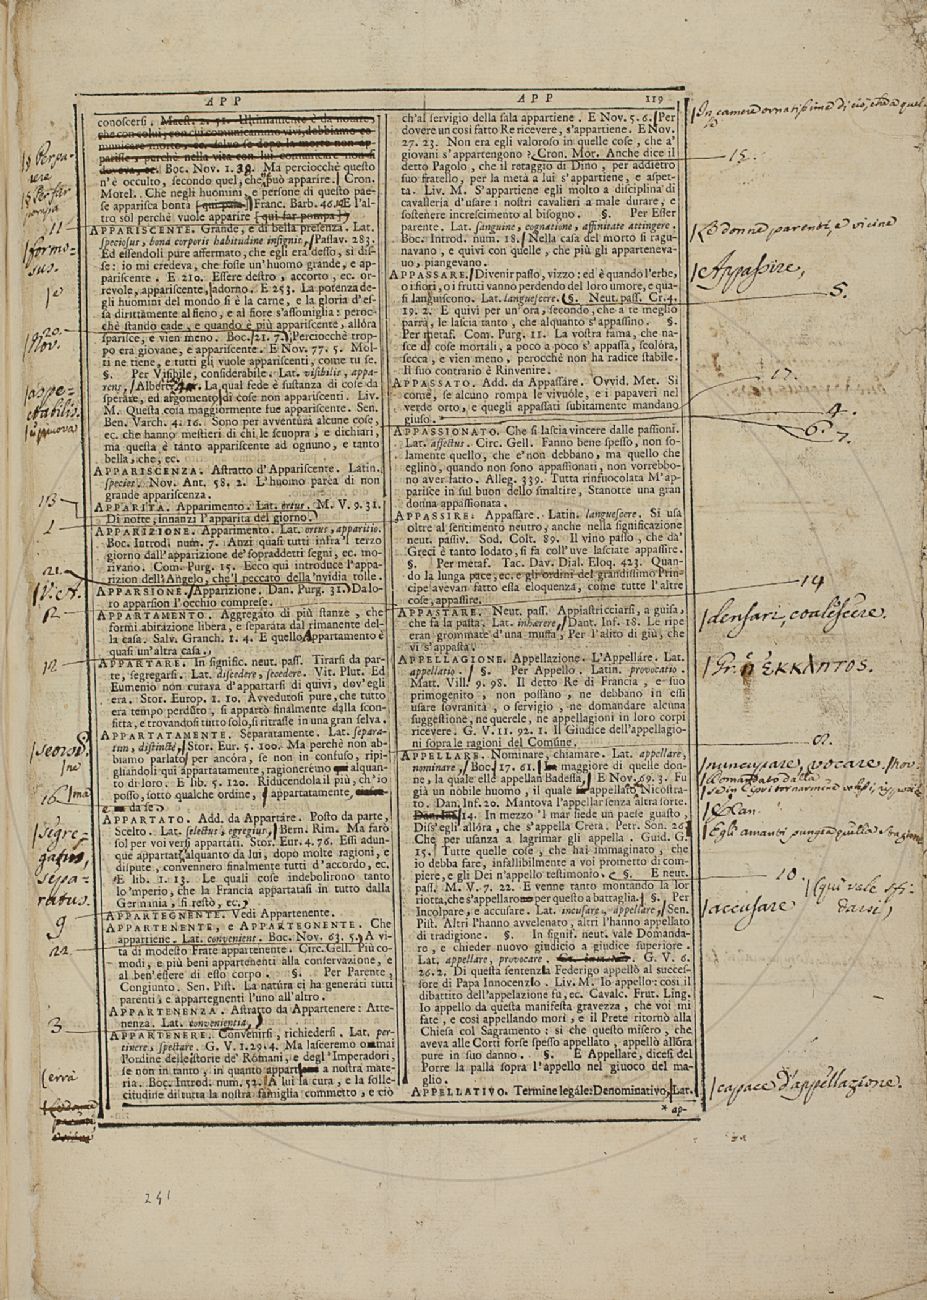 APP
APP 119
conoscersi.
n'è occulto, secondo quel, che può apparire. Cron.
Morel. Che negli huomini, e persone di questo pae-
se apparisca bontà Franc. Barb. 46. E l'al-
tro sol perchè vuole apparire [qui far pompa]
APPARISCENTE. Grande, e di bella presenza. Lat.
speciosus, bona corporis habitudine insignis, Passav. 283.
Ed essendoli pure affermato, che egli era desso, sì dis-
se: io mi credeva, che fosse un'huomo grande, e ap-
pariscente. E 210. Essere destro, accorto, ec. or-
revole, appariscente, adorno. E 253. La potenza de-
gl huomini del mondo si è la carne, e la gloria d'es-
sa dirittamente al fieno, e al fiore s'assomiglia: peroc-
chè stando cade, e quando è più appariscente, allora
sparisce, e vien meno. Boc. 21. 7. Perciocchè trop-
po era giovane, e appariscente. E Nov. 77. 5. Mol-
ti ne tiene, e tutti gli vuole appariscenti, come tu se.
§. Per Visibile, considerabile. Lat. visibilis, appa-
rens, Albert. La qual fede è sustanza di cose da
sperare, ed argomento di cose non appariscenti. Liv.
M. Questa cosa maggiormente fue appariscente. Sen.
Ben. Varch. 4. 16. Sono per avventura alcune cose,
ec. che hanno mestieri di chi le scuopra, e dichiari,
ma questa è tanto appariscente ad ognuno, e tanto
bella, che, ec.
APPARISCENZA. Astratto d'Appariscente. Latin.
species. Nov. Ant. 58. 2. L'huomo parèa di non
grande appariscenza.
APPARITA. Apparimento. Lat. ortus. M. V. 9. 31.
Di notte, innanzi l'apparita del giorno.
APPARIZIONE. Apparimento. Lat. ortus, apparitio.
Boc. Introd. num. 7. Anzi quasi tutti infra 'l terzo
giorno dall'apparizione de' sopraddetti segni, ec. mo-
rivano. Com. Purg. 15. Ecco qui introduce l'appa-
rizion dell'Angelo, che 'l peccato della 'nvidia tolle.
APPARSIONE. Apparizione. Dan. Purg. 31. Da lo-
ro apparsion l'occhio comprese.
APPARTAMENTO. Aggregato di più stanze, che
formi abitazione libera, e separata dal rimanente del-
la casa. Salv. Granch. 1. 4. E quello Appartamento è
quasi un'altra casa.
APPARTARE. In signific. neut. pass. Tirarsi da par-
te, segregarsi. Lat. discedere, secedere. Vit. Plut. Ed
Eumenio non curava d'appartarsi di quivi, dov'egli
era. Stor. Europ. 1. 10. Avvedutosi pure, che tutto
era tempo perduto, si appartò finalmente dalla scon-
fitta, e trovandosi tutto solo, si ritrasse in una gran selva.
APPARTATAMENTE. Separatamente. Lat. separa-
tim, distinctè, Stor. Eur. 5. 100. Ma perchè non ab-
biamo parlato per ancóra, se non in confuso, ripi-
gliandoli qui appartatamente, ragioneremo alquan-
to di loro. E lib. 5. 120. Riducendola il più, ch'io
posso, sotto qualche ordine, appartatamente,
da se.
APPARTATO. Add. da Appartare. Posto da parte,
Scelto. Lat. selectus, egregius, Bern. Rim. Ma farò
sol per voi versi appartati. Stor. Eur. 4. 76. Essi adun-
que appartati alquanto da lui, dopo molte ragioni, e
dispute, convennero finalmente tutti d'accordo, ec.
E lib. 1. 13. Le quali cose indebolirano tanto
lo 'mperio, che la Francia appartatasi in tutto dalla
Germania, si restò, ec.
APPARTEGNENTE. Vedi Appartenente.
APPARTENENTE, e APPARTEGNENTE. Che
appartiene. Lat. conveniens. Boc. Nov. 63. 5. A vi-
ta di modesto Frate appartenente. Circ. Gell. Più co-
modi, e più beni appartenenti alla conservazione, e
al ben'essere di esso corpo. §. Per Parente,
Congiunto. Sen. Pist. La natura ci ha generati tutti
parenti, e appartegnenti l'uno all'altro.
APPARTENENZA. Astratto da Appartenere: Atte-
nenza. Lat. convenientia,
APPARTENERE. Convenirsi, richiedersi. Lat. per-
tinere, spectare. G. V. 1. 29. 4. Ma lasceremo omai
l'ordine delle storie de' Romani, e degl'Imperadori,
se non in tanto, in quanto appart a nostra mate-
ria. Boc. Introd. num. 52. A lui la cura, e la solle-
citudine di tutta la nostra famiglia commetto, e ciò
ch'al servigio della sala appartiene. E Nov. 5. 6. Per
dovere un così fatto Re ricevere, s'appartiene. E Nov.
27. 23. Non era egli valoroso in quelle cose, che a'
giovani s'appartengono? Cron. Mor. Anche dice il
detto Pagolo, che il retaggio di Dino, per addietro
suo fratello, per la metà a lui s'appartiene, e aspet-
ta. Liv. M. S'appartiene egli molto a disciplina di
cavalleria d'usare i nostri cavalieri a male durare, e
sostenere increscimento al bisogno. §. Per Esser
parente. Lat. sanguine, cognatione, affinitate attingere.
Boc. Introd. num. 18. Nella casa del morto si ragu-
navano, e quivi con quelle, che più gli apparteneva-
no, piangevano.
APPASSARE. Divenir passo, vizzo: ed è quando l'erbe,
o i fiori, o i frutti vanno perdendo del loro umore, e qua-
si languiscono. Lat. languescere. §. Neut. pass. Cr. 4.
19. 2. E quivi per un'ora, secondo, che a te meglio
parrà, le lascia tanto, che alquanto s'appassino. §.
Per metaf. Com. Purg. 11. La vostra fama, che na-
sce di cose mortali, a poco a poco s'appassa, scolóra,
secca, e vien meno, perocchè non ha radice stabile.
Il suo contrario è Rinvenire.
APPASSATO. Add. da Appassare. Ovvid. Met. Sì
come, se alcuno rompa le vivuole, e i papaveri nel
verde orto, e quegli appassati subitamente mandano
giuso.
APPASSIONATO. Che si lascia vincere dalle passioni.
Lat. affectus. Circ. Gell. Fanno bene spesso, non so-
lamente quello, che e' non debbano, ma quello che
eglino, quando non sono appassionati, non vorrebbo-
no aver fatto. Alleg. 339. Tutta rinfuocolata M'ap-
parisce in sul buon dello smaltire, Stanotte una gran
donna appassionata.
APPASSIRE. Appassare. Latin. languescere. Si usa
oltre al sentimento neutro, anche nella significazione
neut. passiv. Sod. Colt. 89. Il vino passo, che da'
Greci è tanto lodato, si fa coll'uve lasciate appassire.
§. Per metaf. Tac. Dav. Dial. Eloq. 423. Quan-
do la lunga pace, ec. e gli ordini del grandissimo Prin-
cipe avevan fatto essa eloquenza, come tutte l'altre
cose, appassire.
APPASTARE. Neut. pass. Appiastricciarsi, a guisa,
che fa la pasta. Lat. inhærere, Dant. Inf. 18. Le ripe
eran grommate d'una muffa, Per l'alito di giù, che
vi s'appasta.
APPELLAGIONE. Appellazione. L'Appellare. Lat.
appellatio. §. Per Appello, Latin. provocatio.
Matt. Vill. 9. 98. Il detto Re di Francia, e suo
primogenito, non possano, ne debbano in essi
usare sovranità, o servigio, ne domandare alcuna
suggestione, ne querele, ne appellagioni in loro corpi
ricevere. G. V. 11. 92. 1. Il Giudice dell'appellagio-
ni sopra le ragioni del Comune.
APPELLARE. Nominare, chiamare. Lat. appellare,
nominare, Boc. 17. 61. maggiore di quelle don-
ne, la quale elle appellan Badessa, E Nov. 69. 3. Fu
già un nobile huomo, il quale appellato Nicostra-
to. Dan. Inf. 20. Mantova l'appellar senza altra sorte.
14. In mezzo 'l mar siede un paese guasto,
Diss'egli allóra, che s'appella Creta. Petr. Son. 26
Che per usanza a lagrimar gli appella. Guid. G.
15. Tutte quelle cose, che hai immaginato, che
io debba fare, infallibilmente a voi prometto di com-
piere, e gli Dei n'appello testimonio. §. E neut.
pass. M. V. 7. 22. E venne tanto montando la lor
riotta, che s'appellarono per questo a battaglia. §. Per
Incolpare, e accusare. Lat. incusare, appellare, Sen.
Pist. Altri l'hanno avvelenato, altri l'hanno appellato
di tradigione. §. In signif. neut. vale Domanda-
re, e chieder nuovo giudicio a giudice superiore.
Lat. appellare, provocare. G. V. 6.
26. 2. Di questa sentenzia Federigo appellò al succes-
sore di Papa Innocenzio. Liv. M. Io appello: così il
dibattito dell'appelazione fu, ec. Cavalc. Frut. Ling.
Io appello da questa manifesta gravezza, che voi mi
fate, e così appellando morì, e il Prete ritornò alla
Chiesa col Sagramento: sì che questo misero, che
aveva alle Corti forse spesso appellato, appellò allóra
pure in suo danno. §. E Appellare, dicesi del
Porre la palla sopra l'appello nel giuoco del ma-
glio.
APPELLATIVO. Termine legále: Denominativo, Lat.
* ap-
11
formo-
sus.
20.
Nov.
13
1
21.
12
12
seorsũ
ne
16 ma
segre-
gatus,
sepa-
ratus.
9
22
3
erra
15.
Le donne parenti, e vicine
Appassire,
5.
17.
4.
6.
7.
14
densari, coalescere.
Gr. ἡ ἔκκλητος.
8.
nuncupare, vocare.
10
accusare
(qui vale sfi-
darsi)
capace d'appellazione.
241